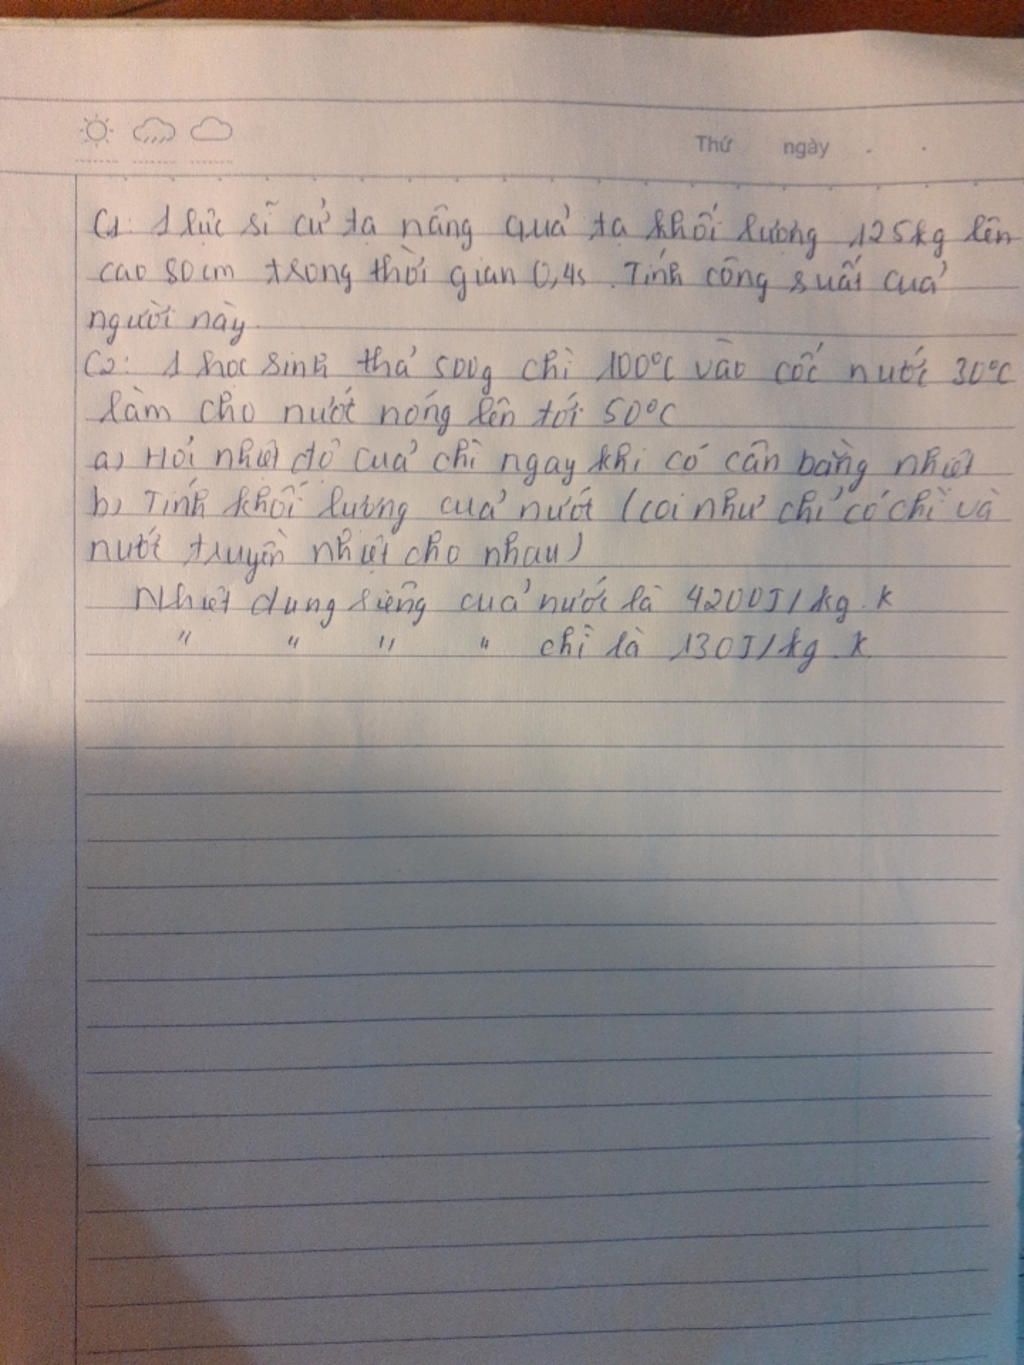 Thứ ngày
C1: 1 lực sĩ cử tạ nâng quả tạ khối lượng 125kg lên
cao 80cm trong thời gian 0,4s. Tính công suất cuả
người này.
C2: 1 học sinh thả 500g chì 100°C vào cốc nước 30°C
làm cho nước nóng lên tới 50°C
a) Hỏi nhiệt độ cuả chì ngay khi có cân bằng nhiệt
b) Tính khối lượng cuả nước (coi như chỉ có chì và
nước truyền nhiệt cho nhau)
Nhiệt dung riêng cuả nước là 4200J/kg.K
" " " " chì là 130J/kg.K